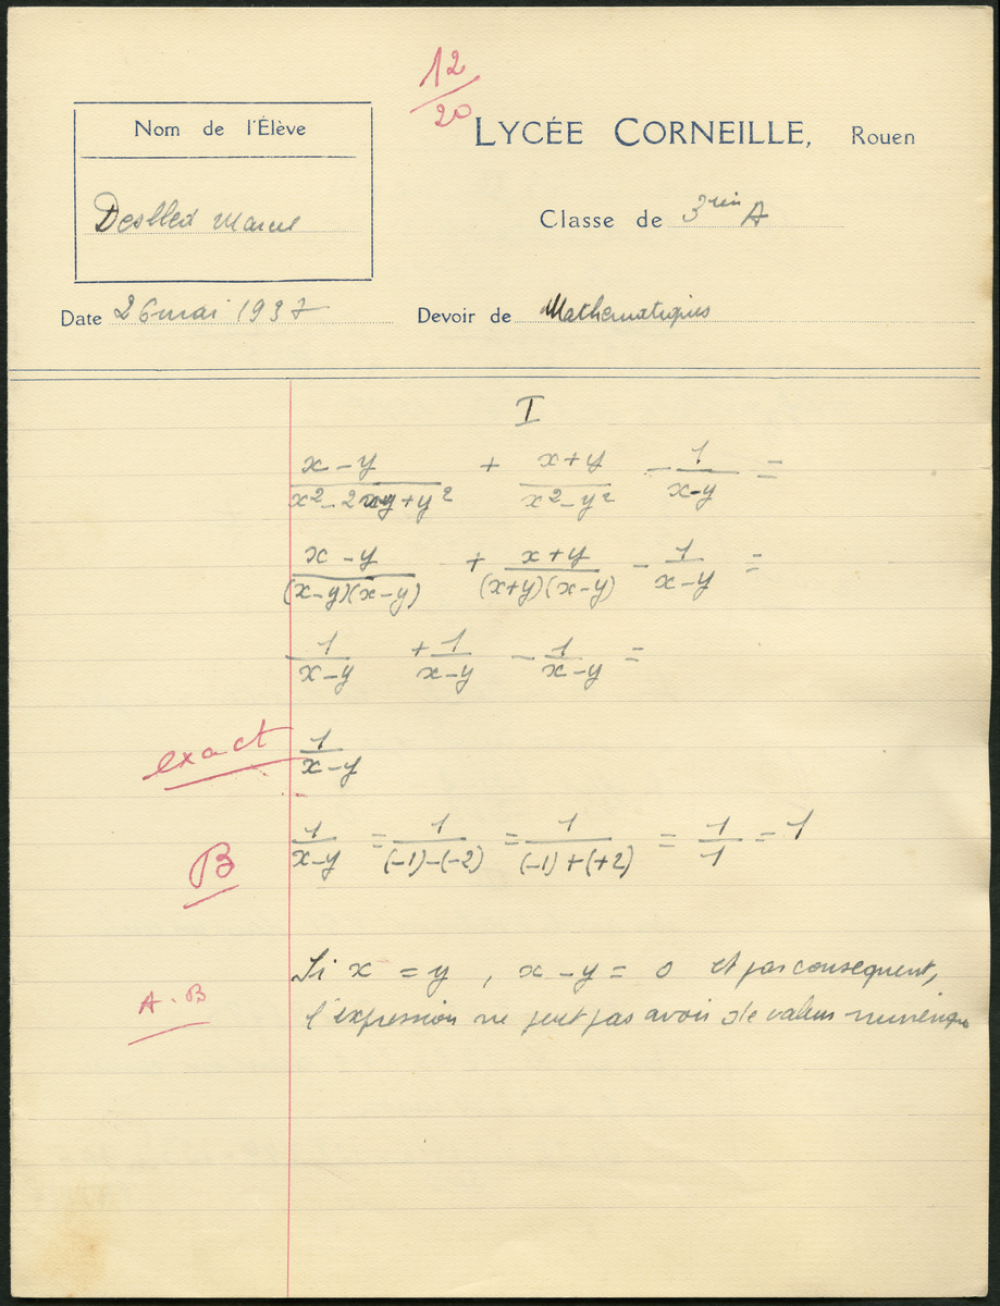 12/20
Nom de l'Élève
LYCÉE CORNEILLE, Rouen
Marcel
Classe de 3ième A
Date 26 mai 1937
Devoir de Mathematiques
I
(x-y)/(x²-2xy+y²) + (x+y)/(x²-y²) - 1/(x-y) =
(x-y)/((x-y)(x-y)) + (x+y)/((x+y)(x-y)) - 1/(x-y) =
1/(x-y) + 1/(x-y) - 1/(x-y) =
exact 1/(x-y)
B 1/(x-y) = 1/((-1)-(-2)) = 1/((-1)+(+2)) = 1/1 = 1
Si x = y, x-y = 0 et par consequent,
A.B l'expression ne peut pas avoir de valeur numérique